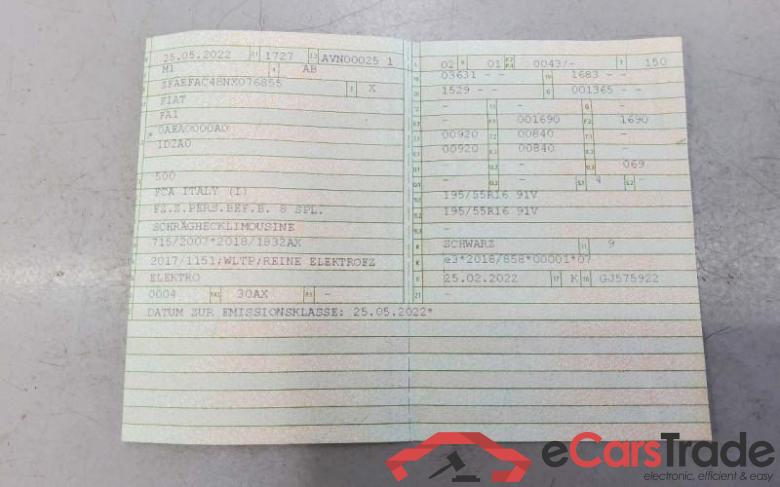 25.05.2022 1727 AVN00025 1
M1 AB
ZFAEFAC48NX076855 X
FIAT
FA1
0AEA0000A0
1D2A0
500
FCA ITALY (I)
FZ.Z.PERS.BEF.B. 8 SPL.
SCHRÄGHECKLIMOUSINE
715/2007*2018/1832AX
2017/1151;WLTP;REINE ELEKTROFZ
ELEKTRO
0004 30AX -
DATUM ZUR EMISSIONSKLASSE: 25.05.2022*
02 01 0043/- 150
03631 - - 1683 - -
1529 - - 001365 - -
- - -
- 001690 1690
00920 00840 -
00920 00840 -
- - 069
- - 4 -
195/55R16 91V
195/55R16 91V
-
SCHWARZ 9
e3*2018/858*00001*07
25.02.2022 K GJ575922
-
eCarsTrade
electronic, efficient & easy